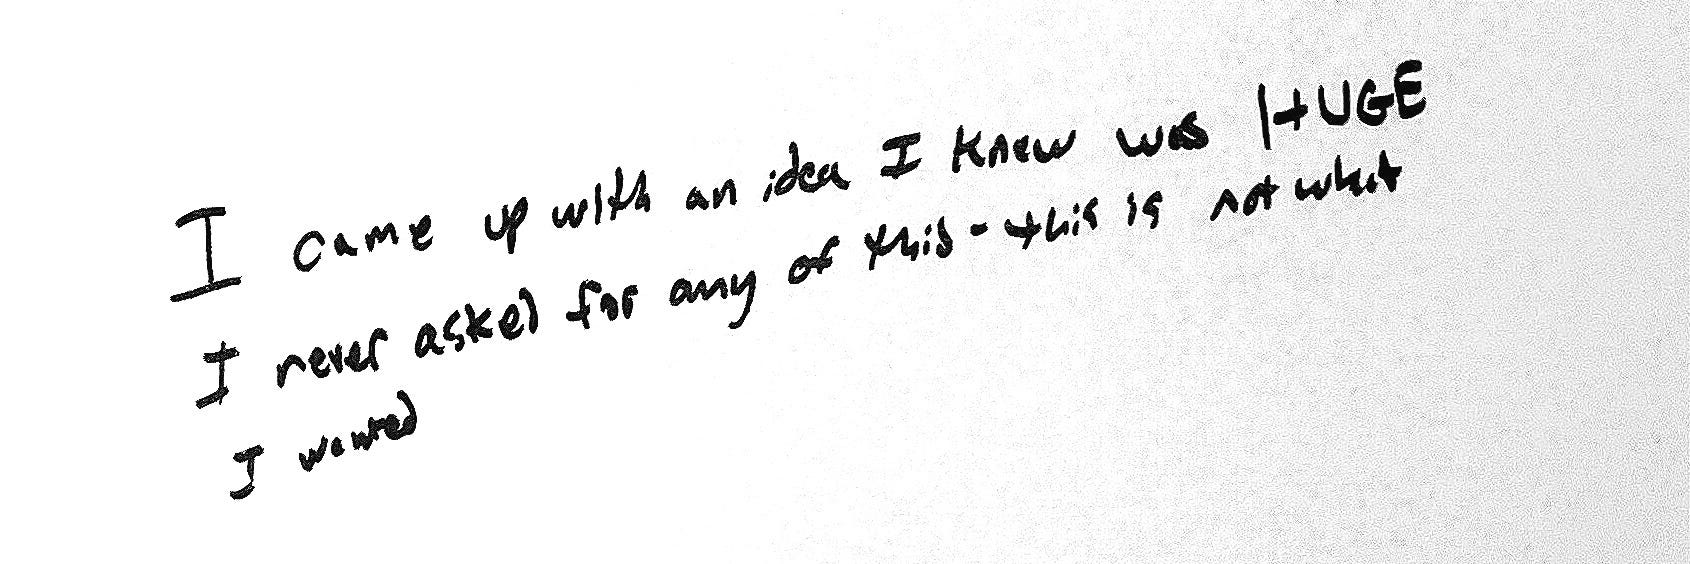 I came up with an idea I knew was HUGE
I never asked for any of this - this is not what
I wanted